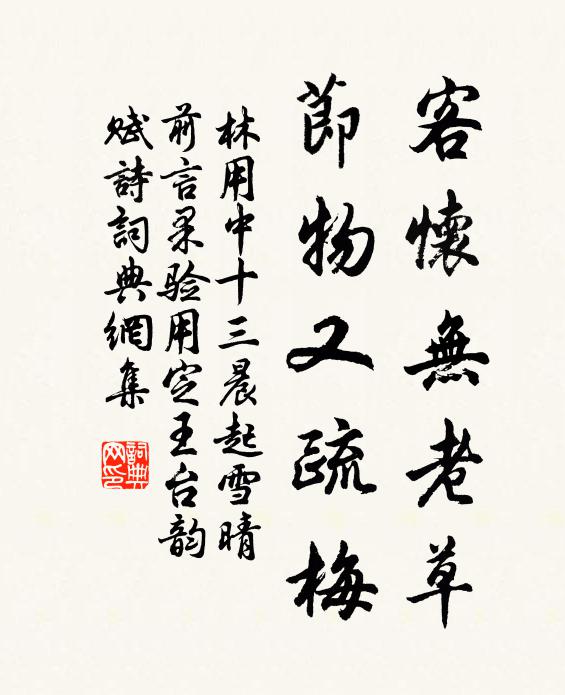 客懷無老草
節物又疏梅
林用中十三晨起雪晴
前言果验用定王台韵
賦詩詞典網集
詞典
网印